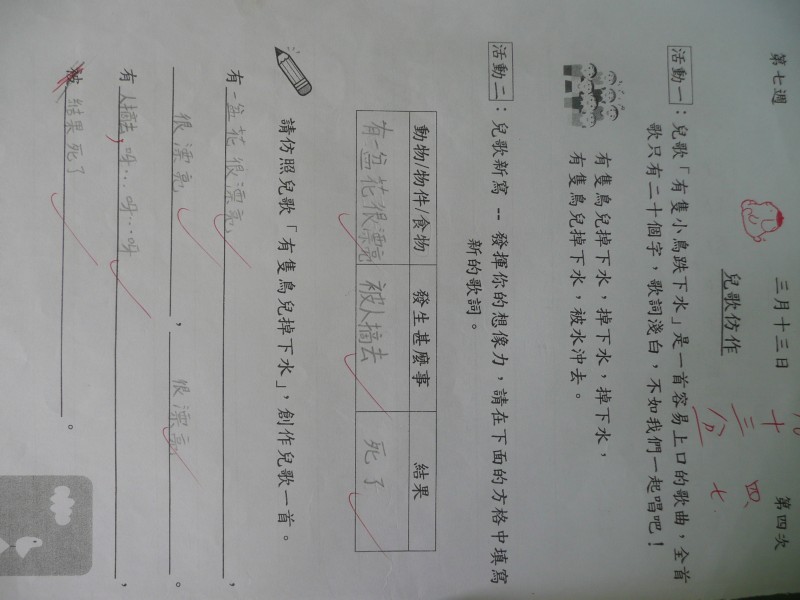 第七週 三月十三日 第四次
兒歌仿作
活動一：兒歌「有隻小鳥跌下水」是一首容易上口的歌曲，全首
歌只有二十個字，歌詞淺白，不如我們一起唱吧！
有隻鳥兒掉下水，掉下水，掉下水，
有隻鳥兒掉下水，被水沖去。
活動二：兒歌新寫 -- 發揮你的想像力，請在下面的方格中填寫
新的歌詞。
動物/物件/食物 發生甚麼事 結果
有一盆花很漂亮 被人摘去 死了
請仿照兒歌「有隻鳥兒掉下水」，創作兒歌一首。
有一盆花很漂亮，
很漂亮，很漂亮。
有人摘去，呀…呀…呀，
被結果死了。